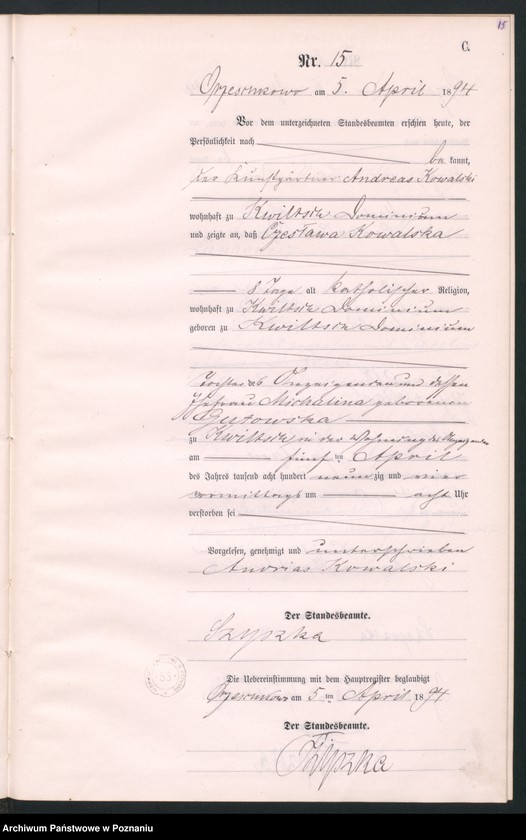 15
C.
Nr. 15
am 5. April 1894
Vor dem unterzeichneten Standesbeamten erschien heute, der
Persönlichkeit nach
be kannt,
der Kunstgärtner Andreas Kowalski
wohnhaft zu Kwiltsch Dominium
und zeigte an, daß Czesława Kowalska
8 Tage alt katholischer Religion,
wohnhaft zu Kwiltsch Dominium
geboren zu Kwiltsch Dominium
Tochter des Anzeigenden und dessen
Ehefrau Michalina geborenen
Gutowska
zu Kwiltsch in der Wohnung des Anzeigenden
am fünf ten April
des Jahres tausend acht hundert neun zig und vier
vormittags um acht Uhr
verstorben sei
Vorgelesen, genehmigt und unterschrieben
Andrias Kowalski
Der Standesbeamte.
Die Uebereinstimmung mit dem Hauptregister beglaubigt
am 5 ten April 1894
Der Standesbeamte.
Archiwum Państwowe w Poznaniu